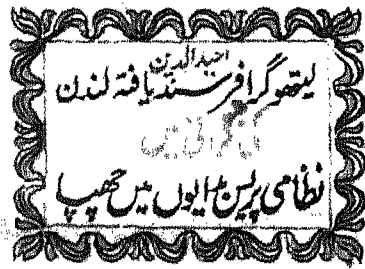 احید الدین
لیتھوگرافر سند یافتہ لندن
کی نگرانی میں
نظامی پریس بدایوں میں چھپا